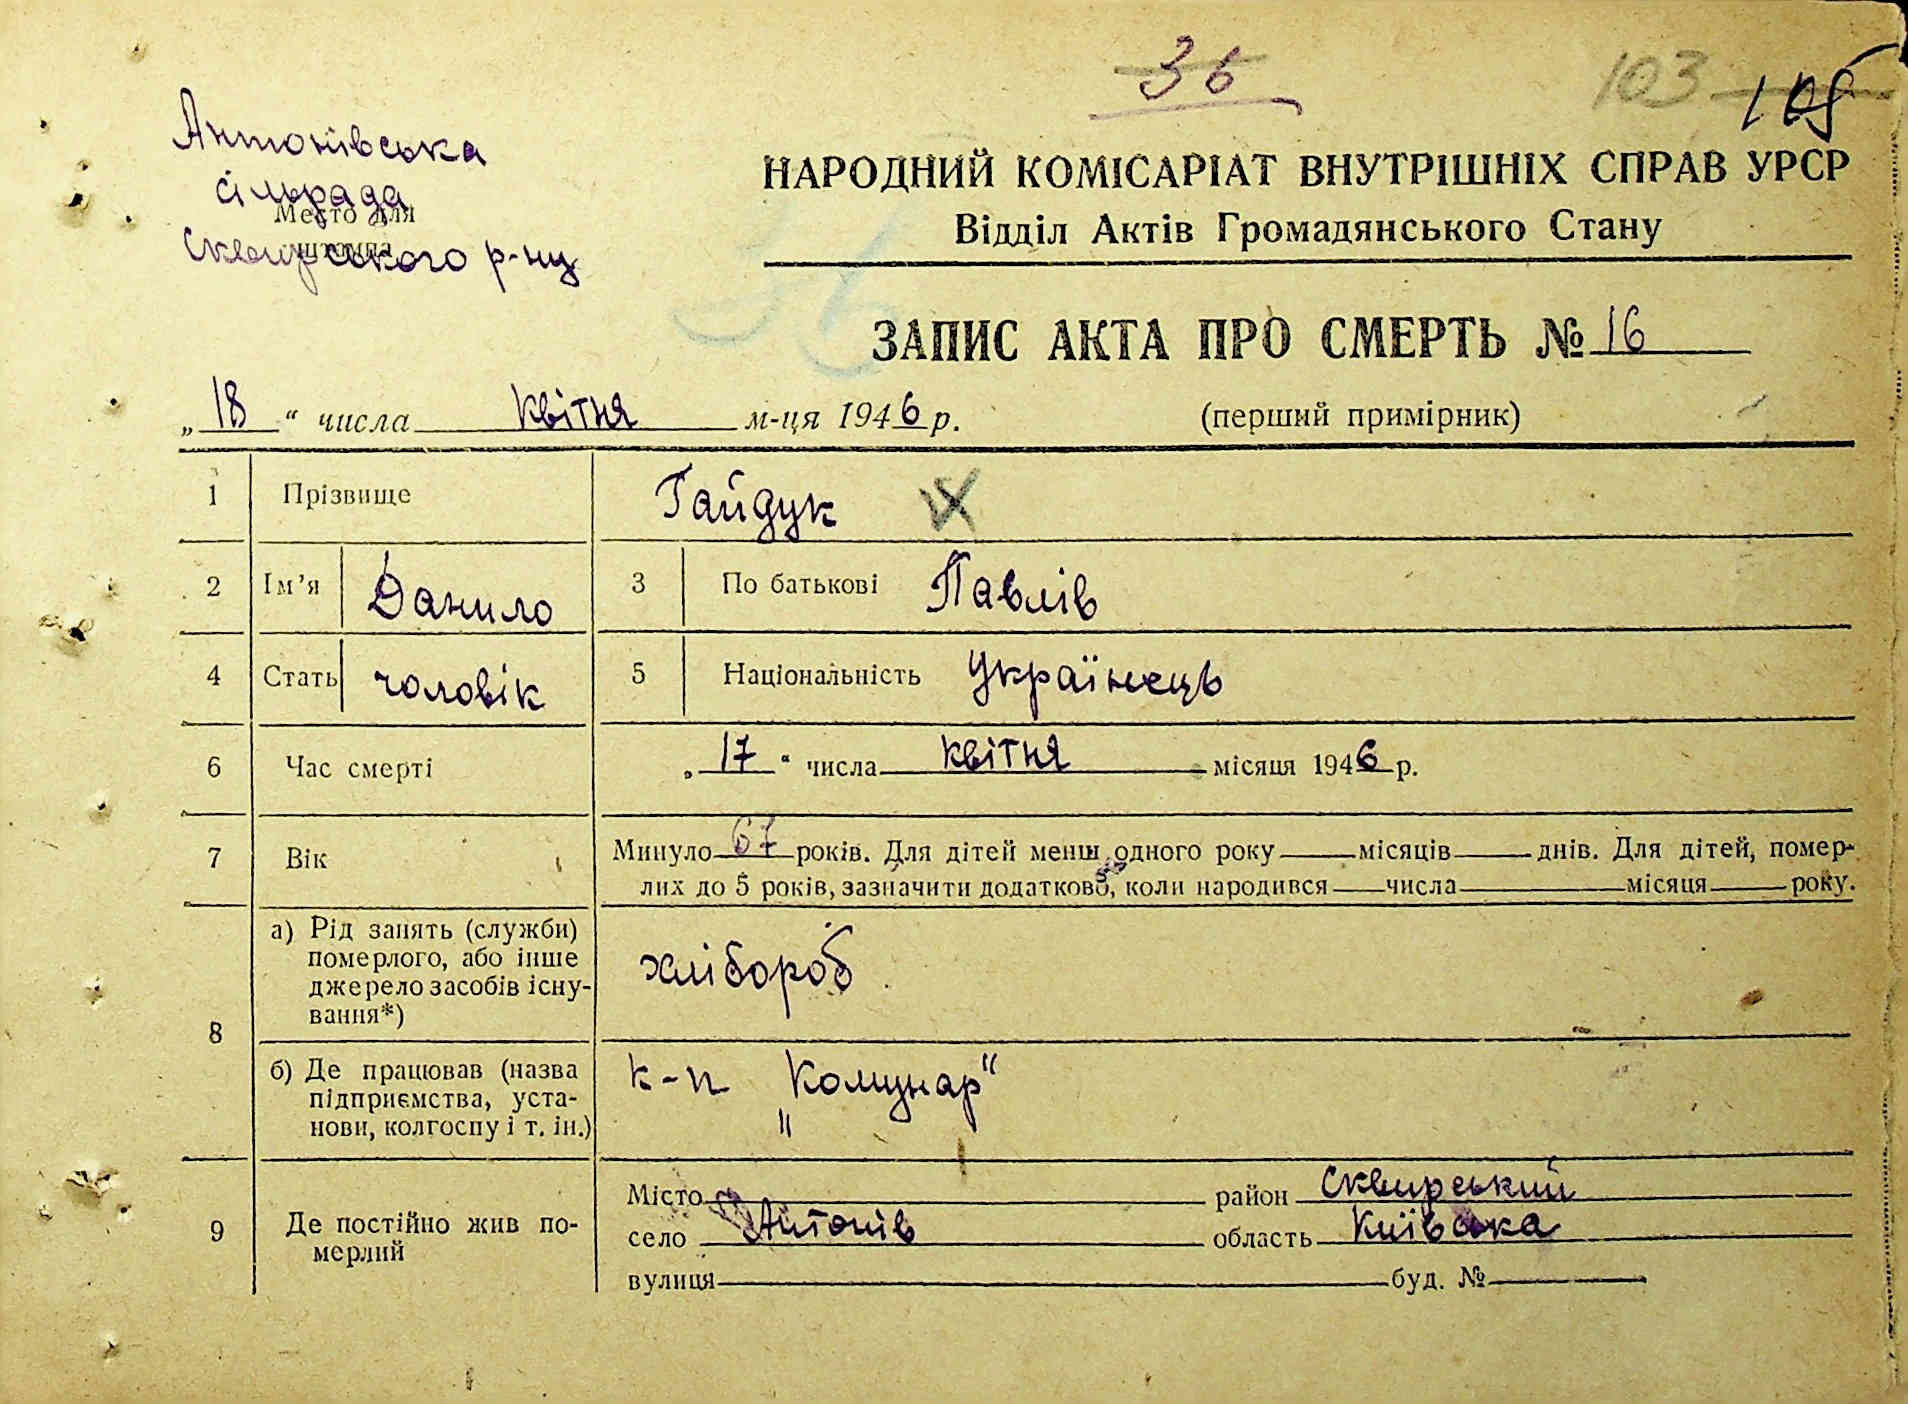 36
103 105
Антонівська
сільрада
Место для
штампа
Сквирського р-ну
НАРОДНИЙ КОМІСАРІАТ ВНУТРІШНІХ СПРАВ УРСР
Відділ Актів Громадянського Стану
36
ЗАПИС АКТА ПРО СМЕРТЬ № 16
„18“ числа квітня м-ця 1946 р. (перший примірник)
1 Прізвище Гайдук
2 Ім’я Данило 3 По батькові Павлів
4 Стать чоловік 5 Національність Українець
6 Час смерті „17“ числа квітня місяця 1946 р.
7 Вік Минуло 67 років. Для дітей менш одного року місяців днів. Для дітей, помер-
лих до 5 років, зазначити додатково, коли народився числа місяця року.
8 а) Рід занять (служби)
померлого, або інше
джерело засобів існу-
вання*) хлібороб
б) Де працював (назва
підприємства, уста-
нови, колгоспу і т. ін.) к-п „Комунар“
9 Де постійно жив по-
мерлий
Місто район Сквирський
село Антонів область Київська
вулиця буд. №